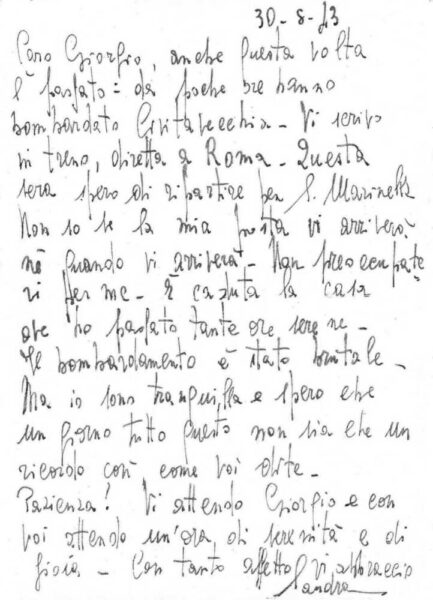 30-8-43
Caro Giorgio, anche questa volta
è passato = da poche ore hanno
bombardato Civitavecchia - Vi scrivo
in treno, diretta a Roma - Questa
sera spero di ripartire per S. Marinella
Non so se la mia posta vi arriverà
nè quando vi arriverà - Non preoccupate
vi per me - È caduta la casa
ove ho passato tante ore serene -
Il bombardamento è stato brutale -
Ma io sono tranquilla e spero che
un giorno tutto questo non sia che un
ricordo così come voi dite -
Pazienza! Vi attendo Giorgio e con
voi attendo un'ora di serenità e di
gioia - Con tanto affetto vi abbraccio
Sandra